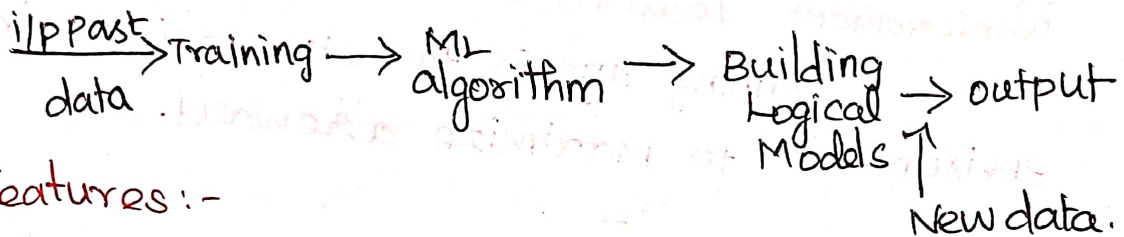 i/p past
data.
Training
ML
algorithm
Building
Logical
Models
output
New data.
eatures:-